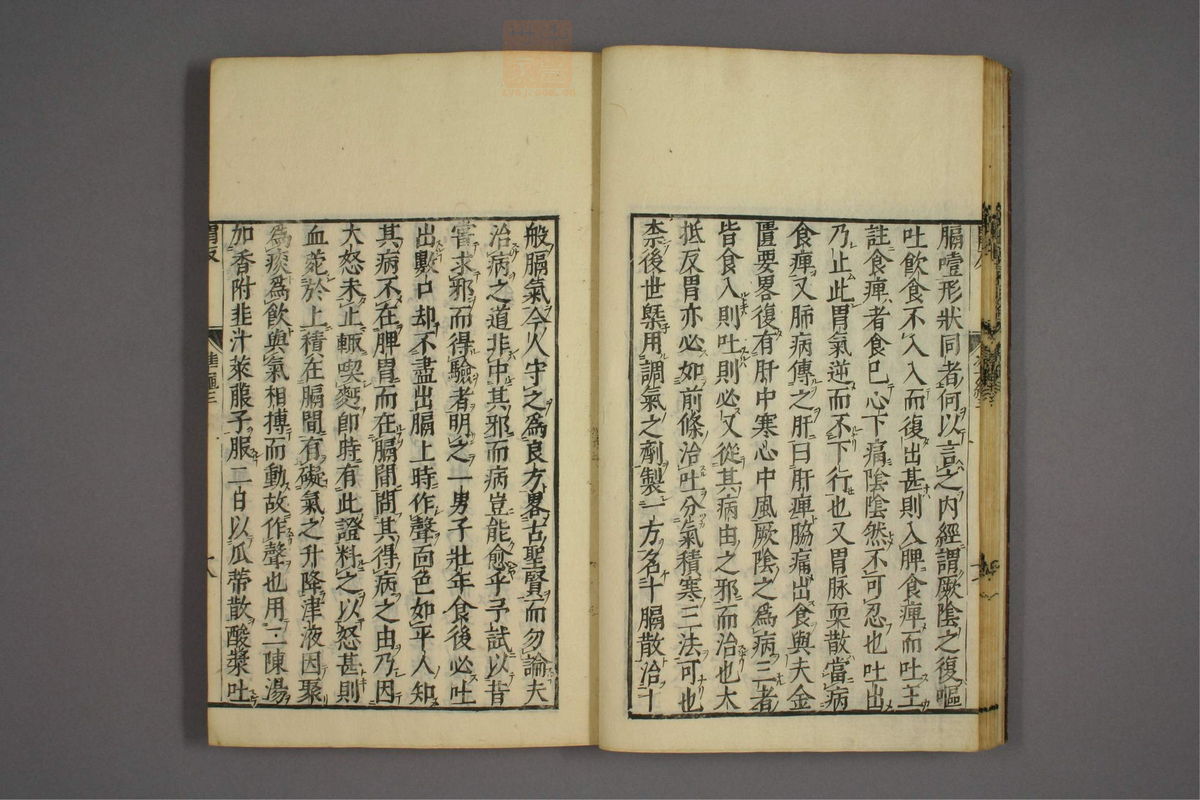 膈噎形狀同者何以言之內經謂厥陰之復嘔
吐飲食不入入而復出甚則入脾食痺而吐王
註食痺者食已心下痛陰陰然不可忍也吐出
乃止此胃氣逆而不下行也又胃脉耎散當病
食痺又肺病傳之肝曰肝痺脇痛出食與夫金
匱要畧復有肝中寒心中風厥陰之爲病三者
皆食入則吐則必又從其病由之邪而治也大
抵反胃亦必如前條治吐分氣積寒三法可也
柰後世槩用調氣之劑製一方名十膈散治十
般膈氣令人守之爲良方畧古聖賢而勿論夫
治病之道非中其邪而病豈能愈乎予試以昔
嘗求邪而得驗者明之一男子壯年食後必吐
出數口却不盡出膈上時作聲面色如平人知
其病不在脾胃而在膈間問其得病之由乃因
大怒未止輒喫麪即時有此證料之以怒甚則
血菀於上積在膈間有礙氣之升降津液因聚
爲痰爲飲與氣相搏而動故作聲也用二陳湯
加香附韭汁萊菔子服二日以瓜蒂散酸漿吐
胃反
準繩三